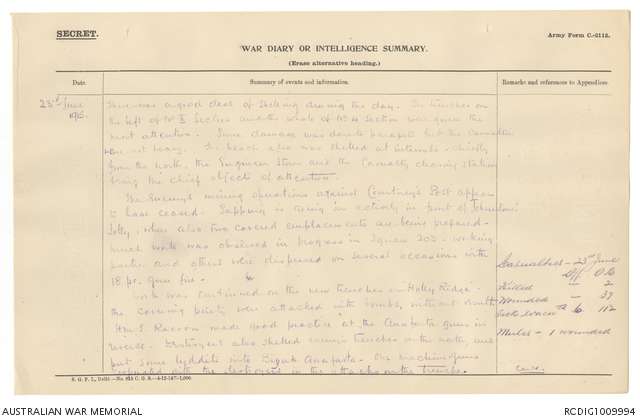 SECRET.
Army Form C.-2118.
WAR DIARY OR INTELLIGENCE SUMMARY.
(Erase alternative heading.)
Date.
Summary of events and information.
Remarks and references to Appendices.
23rd June
1915.
There was a good deal of shelling during the day. The trenches on
the left of No 3 Section and the whole of No 4 Section was given the
most attention. Some damage was done to parapets but the casualties
were not heavy. The beach also was shelled at intervals chiefly
from the north, the Engineer Store and the Casualty clearing station
being the chief objects of attention.
The Enemy's mining operations against Courtney's Post appear
to have ceased. Sapping is going on actively in front of Johnston's
Jolly, where also two covered emplacements are being prepared.
work was observed in progress in Square 203 - working
parties and others were dispersed on several occasions with
18 pr. gun fire.
Work was continued on the new trenches on Holly Ridge.
the covering party were attacked with bombs, without result.
H.M.S. made good practice at the Anafarta guns in
Destroyers also shelled enemy's trenches on the north, and
put some lyddite into Biyuk Anafarta. Our machine guns
cooperated with the destroyers in the attacks on the trenches.
Casualties - 23rd June
Off O.R.
Killed - 2
Wounded - 39
Sick evacd 6. 112
Mules - 1 wounded
S. G. P. I., Delhi.
AUSTRALIAN WAR MEMORIAL
RCDIG1009994